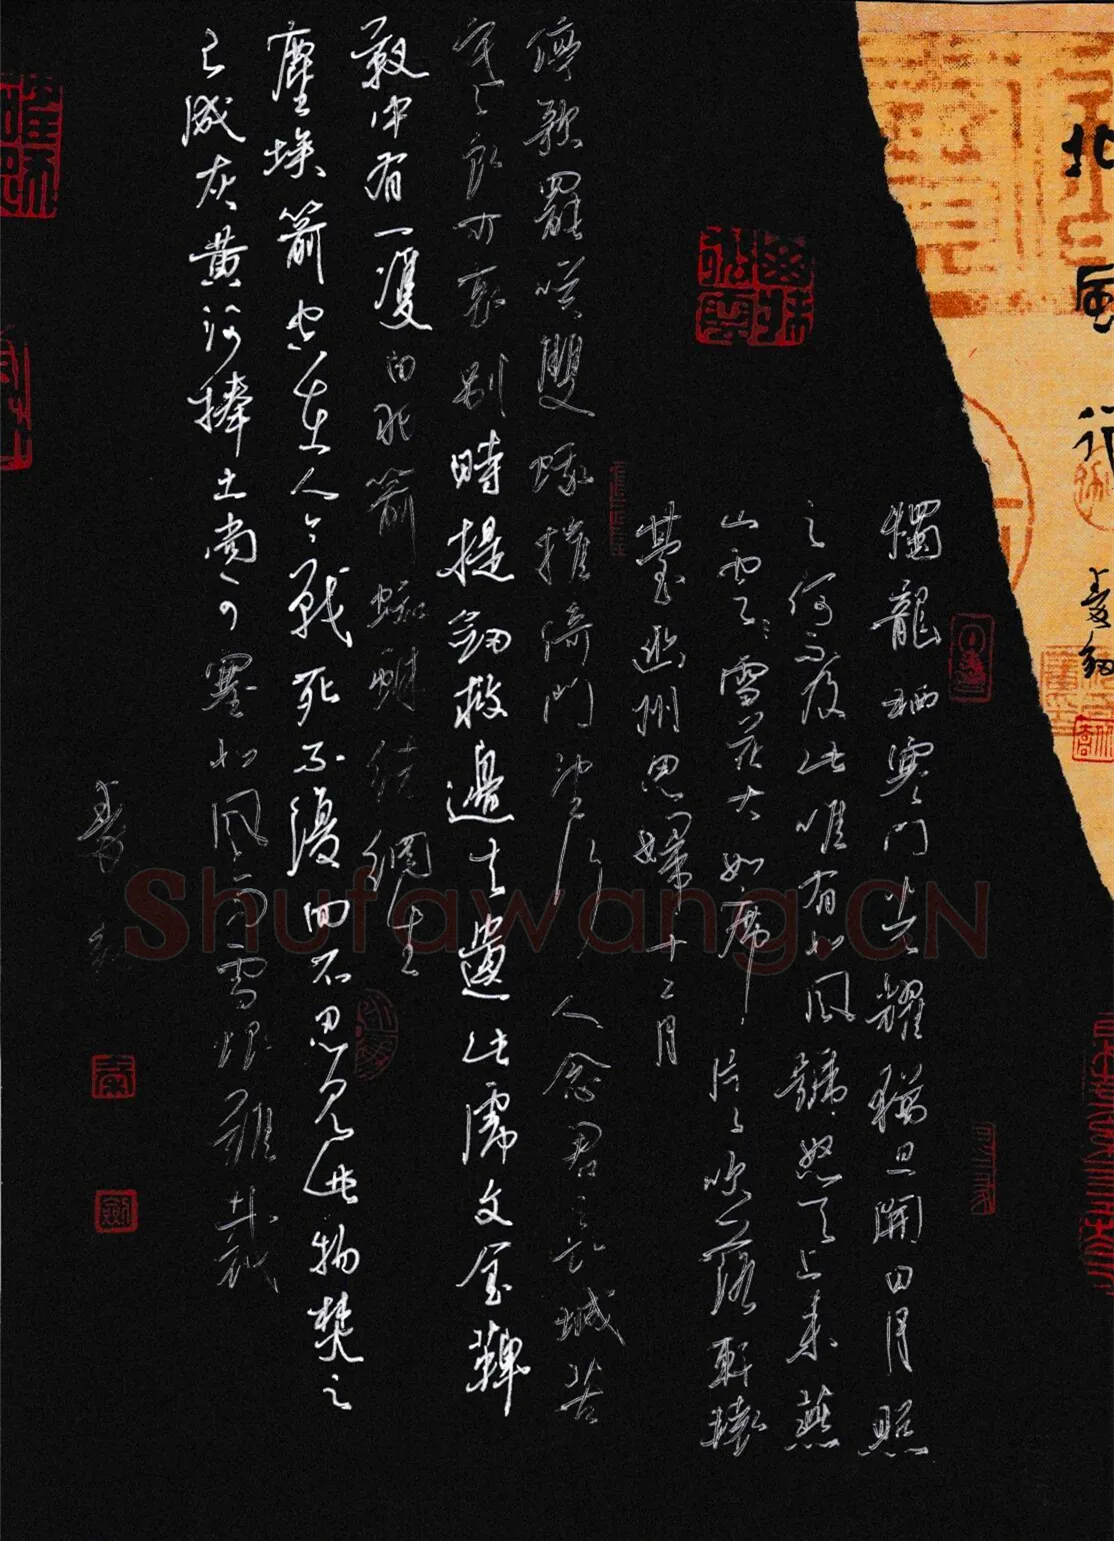 北風行
燭龍栖寒門光耀猶旦開日月照
之何不及此唯有北風號怒天上來燕
山雪花大如席片片吹落軒轅
臺幽州思婦十二月
停歌罷笑雙蛾摧倚門望行人念君長城苦
寒良可哀別時提劍救邊去遺此虎文金鞞
靫中有一雙白羽箭蜘蛛結網生
塵埃箭空在人今戰死不復回不忍見此物焚之
已成灰黃河捧土尚可塞北風雨雪恨難裁
Shufawang.CN